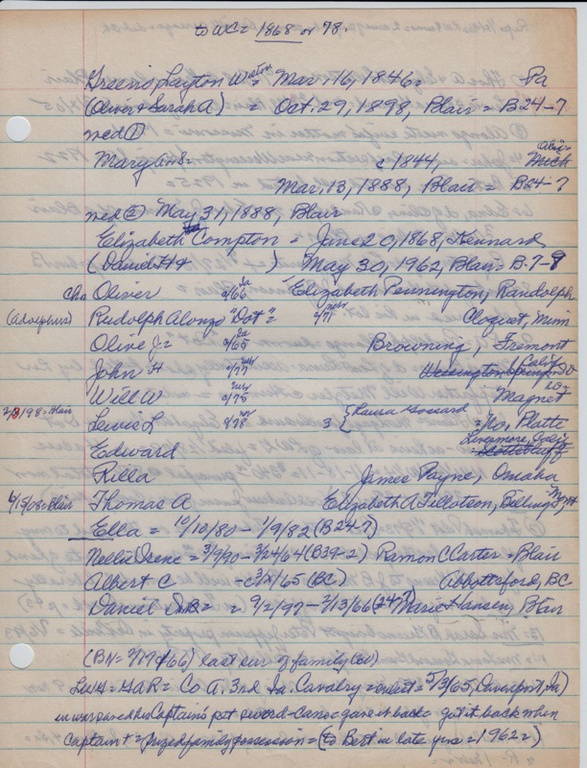 to WC = 1868 or 78.
Greeno, Layton W = Mar. 16, 1846 = Pa
(Oliver & Sarah A) = Oct. 29, 1898, Blair = B24-7
med ①
Mary Ann = c 1844, Mich
Mar. 13, 1888, Blair = B24-7
med ② May 31, 1888, Blair
Elizabeth Compton = June 20, 1868, Kennard
(David H & ) May 30, 1962, Blair = B-7-8
chn Oliver c/66 Ia Elizabeth Pennington, Randolph
(Adolphus) Rudolph Alonzo "Dot" = c/71 Cloquet, Minn
Olive J = c/68 Ia Browning, Fremont
John H c/77 Calif
Will W c/75 Magnet
2/3/98 = Blair Lewis L c/78 3 {Laura Gossard = No. Platte
Livermore, Calif
Edward
Rilla James Payne, Omaha
6/15/08 = Blair Thomas A Elizabeth A Tillotson, Billings, Mont
Ella = 10/10/80 - 1/9/82 (B24-7)
Nellie Irene = 3/9/90 - 3/24/64 (B39-2) Ramon C Carter = Blair
Albert C - c 3/ /65 (BC) Abbottsford, BC
Daniel = 9/2/97 - 2/13/66 (24-7) Marie Hansen, Blair
(BN = 2/17/66) last sur of family (Co)
GAR = Co A, 3rd Ia. Cavalry = enlist = 5/3/65, Davenport, Ia)
in war saved his Captain's pet sword-cane & gave it back & got it back when
Captain + = prized family possession = (to Bert in late yrs = 1962 = )